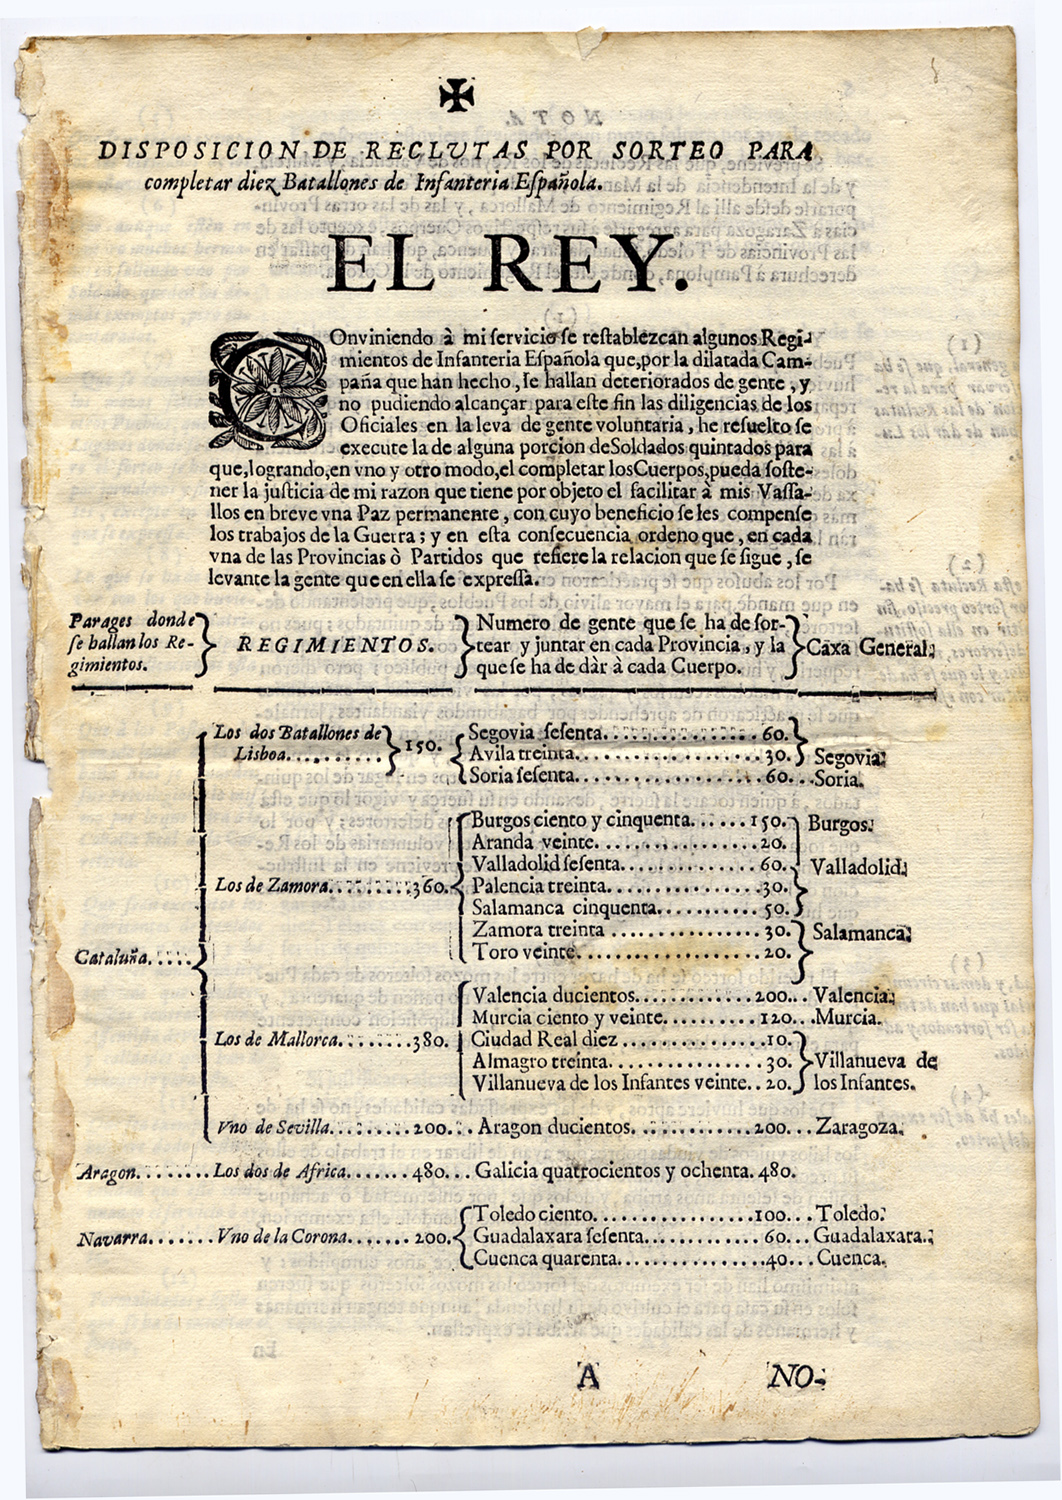 DISPOSICION DE RECLVTAS POR SORTEO PARA
completar diez Batallones de Infanteria Española.
EL REY.
COnviniendo à mi servicio se restablezcan algunos Regi-
mientos de Infanteria Española que, por la dilatada Cam-
paña que hán hecho, se hallan deteriorados de gente, y
no pudiendo alcançar para este fin las diligencias de los
Oficiales en la leva de gente voluntaria, he resuelto se
execute la de alguna porcion de Soldados quintados para
que, logrando, en vno y otro modo, el completar los Cuerpos, pueda soste-
ner la justicia de mi razon que tiene por objeto el facilitar à mis Vassa-
llos en breve vna Paz permanente, con cuyo beneficio se les compense
los trabajos de la Guerra; y en esta consecuencia ordeno que, en cada
vna de las Provincias ò Partidos que refiere la relacion que se sigue, se
levante la gente que en ella se expressa.
Parages donde
se hallan los Re-
gimientos.
REGIMIENTOS.
Numero de gente que se ha de sor-
tear y juntar en cada Provincia, y la
que se ha de dàr à cada Cuerpo.
Caxa General.
Cataluña.....
Los dos Batallones de
Lisboa.......... 150.
Segovia sesenta............... 60.
Avila treinta................ 30. Segovia.
Soria sesenta................ 60... Soria.
Los de Zamora......... 360.
Burgos ciento y cinquenta...... 150. Burgos.
Aranda veinte............... 20.
Valladolid sesenta............. 60. Valladolid.
Palencia treinta.............. 30.
Salamanca cinquenta.......... 50.
Zamora treinta ............... 30. Salamanca.
Toro veinte................. 20.
Los de Mallorca........ 380.
Valencia ducientos............ 200... Valencia.
Murcia ciento y veinte......... 120... Murcia.
Ciudad Real diez ............. 10.
Almagro treinta.............. 30. Villanueva de
Villanueva de los Infantes veinte.. 20. los Infantes.
Vno de Sevilla......... 200... Aragon ducientos............. 200... Zaragoza.
Aragon........ Los dos de Africa...... 480... Galicia quatrocientos y ochenta. 480.
Navarra....... Vno de la Corona....... 200.
Toledo ciento................ 100... Toledo.
Guadalaxara sesenta........... 60... Guadalaxara.
Cuenca quarenta.............. 40... Cuenca.
A NO-